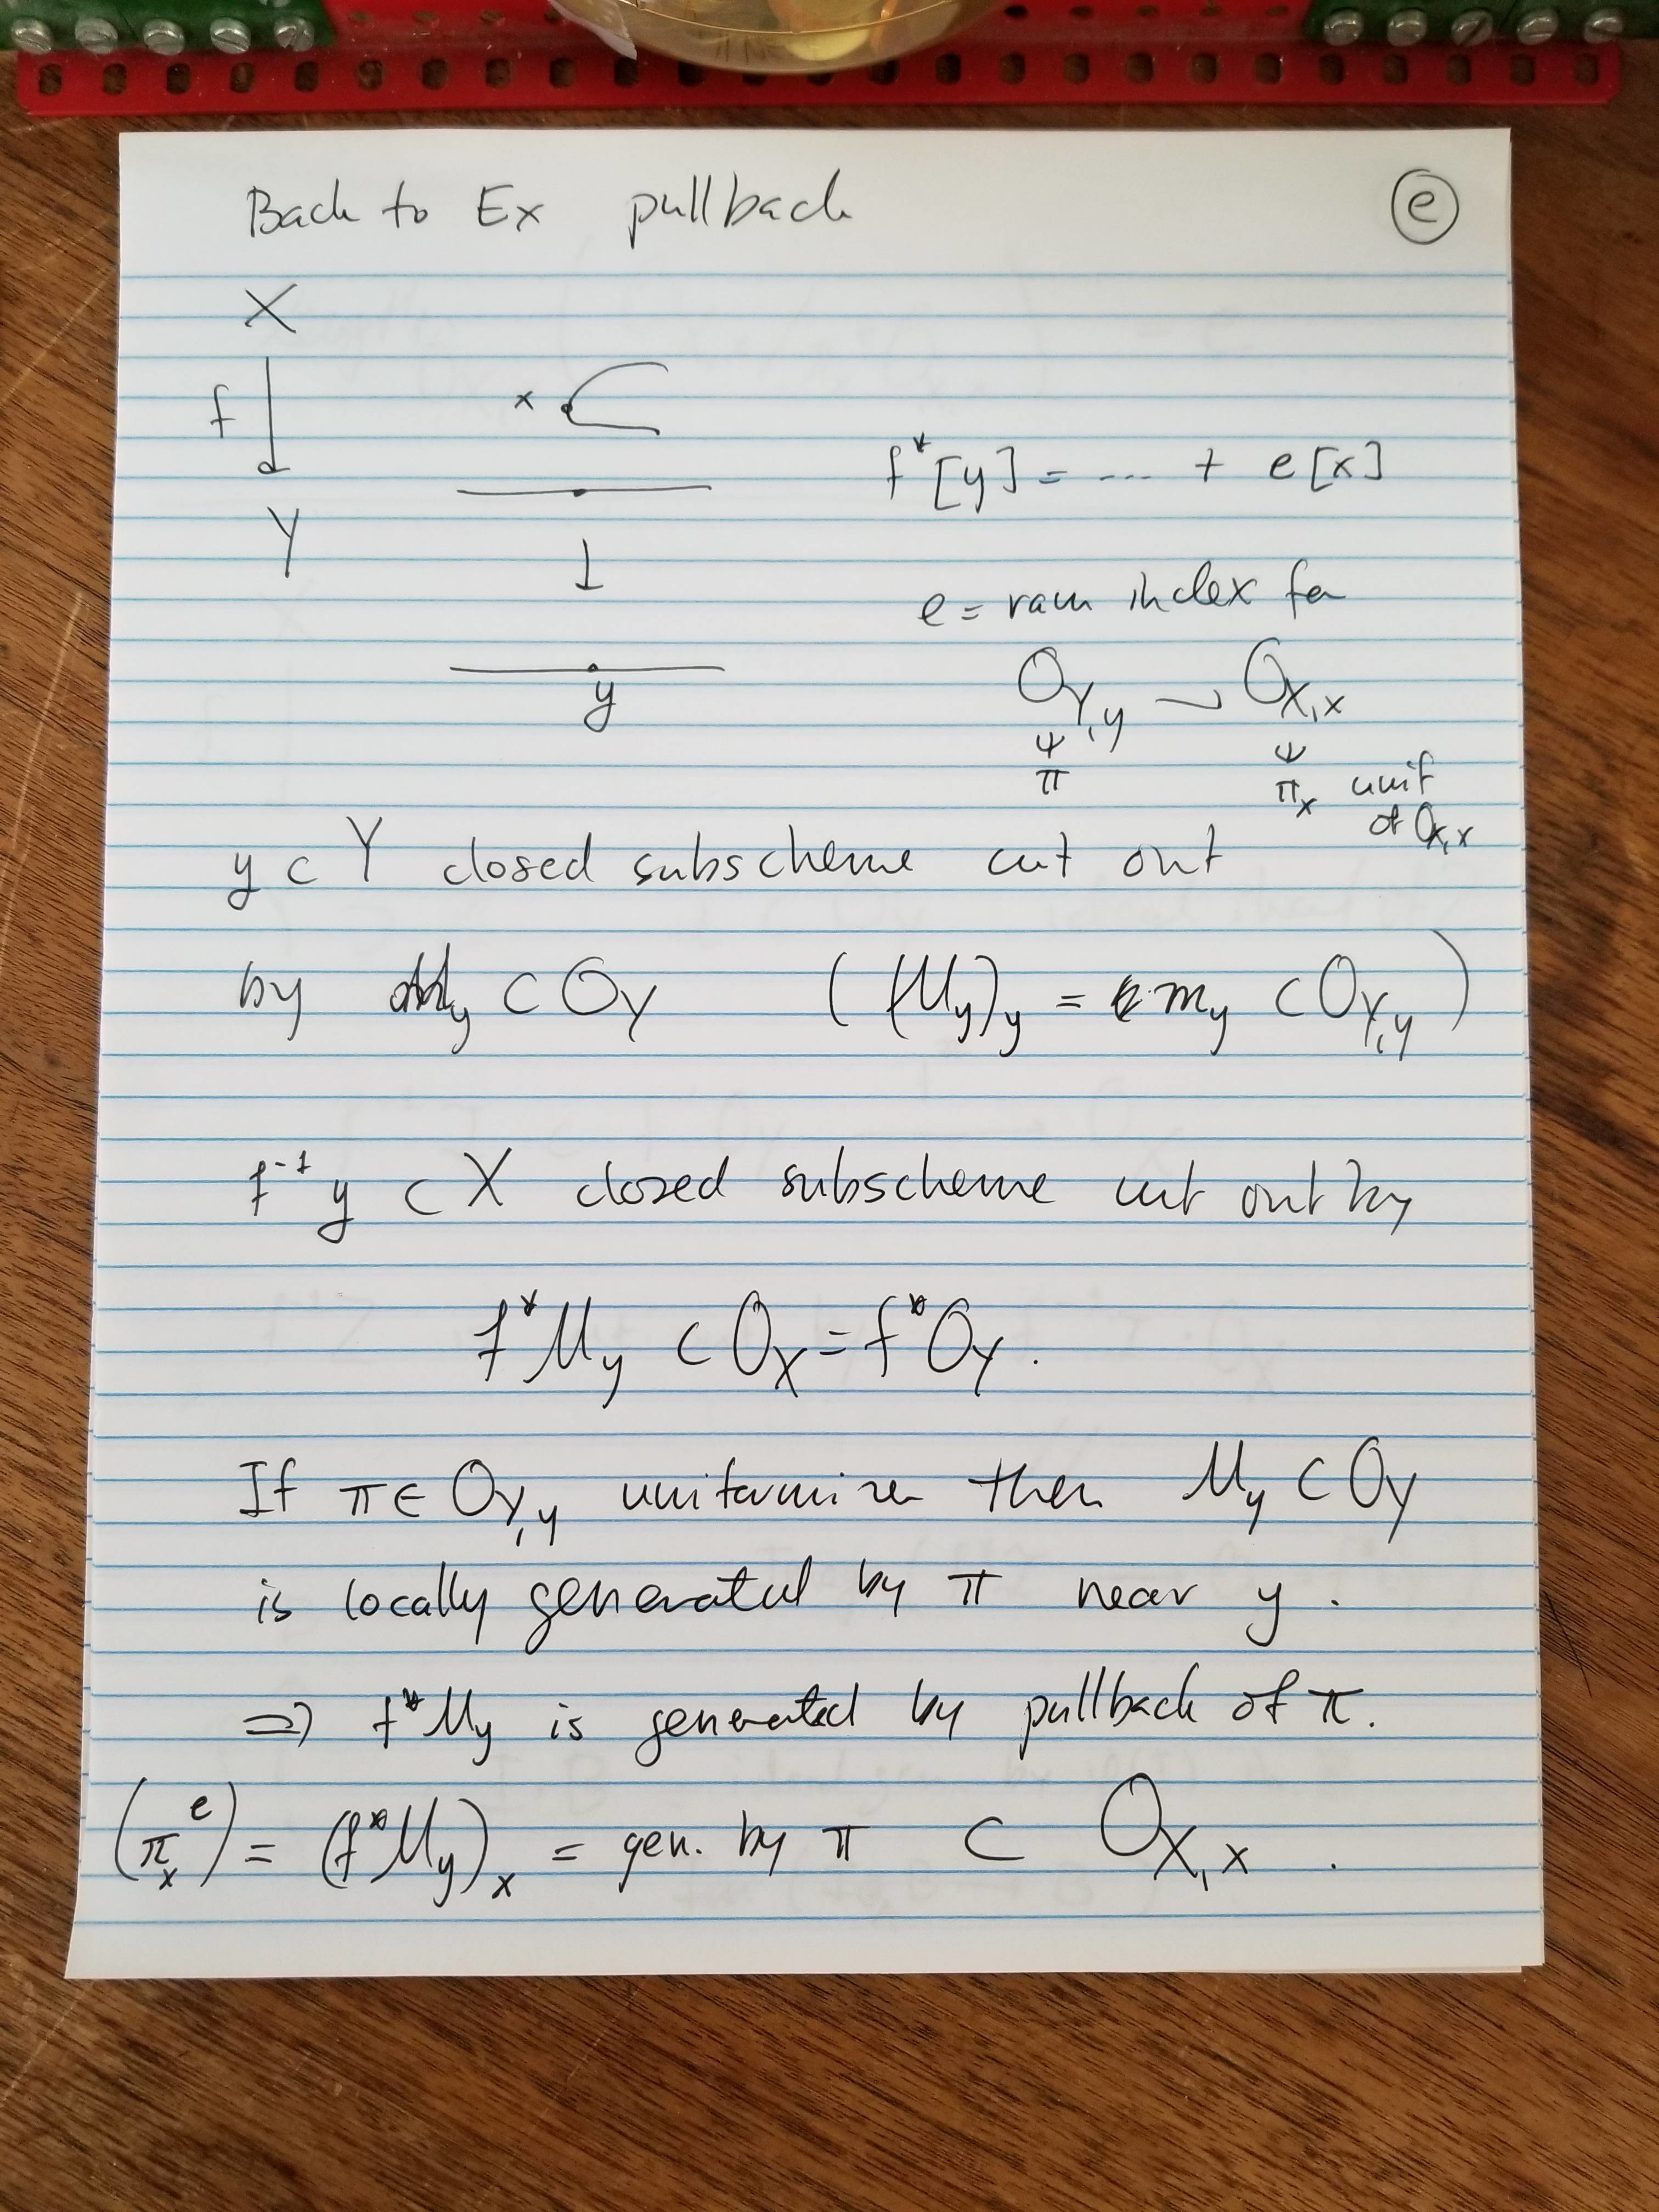 Back to Ex pullback ⓔ
X
f ↓ x
Y
f*[y] = ... + e[x]
↓
y
e = ram index for
O_{Y,y} → O_{X,x}
π π_x unif
of O_{X,x}
y ⊂ Y closed subscheme cut out
by M_y ⊂ O_Y ((M_y)_y = m_y ⊂ O_{Y,y})
f^{-1} y ⊂ X closed subscheme cut out by
f*M_y ⊂ O_X = f*O_Y.
If π ∈ O_{Y,y} uniformizer then M_y ⊂ O_Y
is locally generated by π near y.
⇒ f*M_y is generated by pullback of π.
(π_x^e) = (f*M_y)_x = gen. by π ⊂ O_{X,x}.